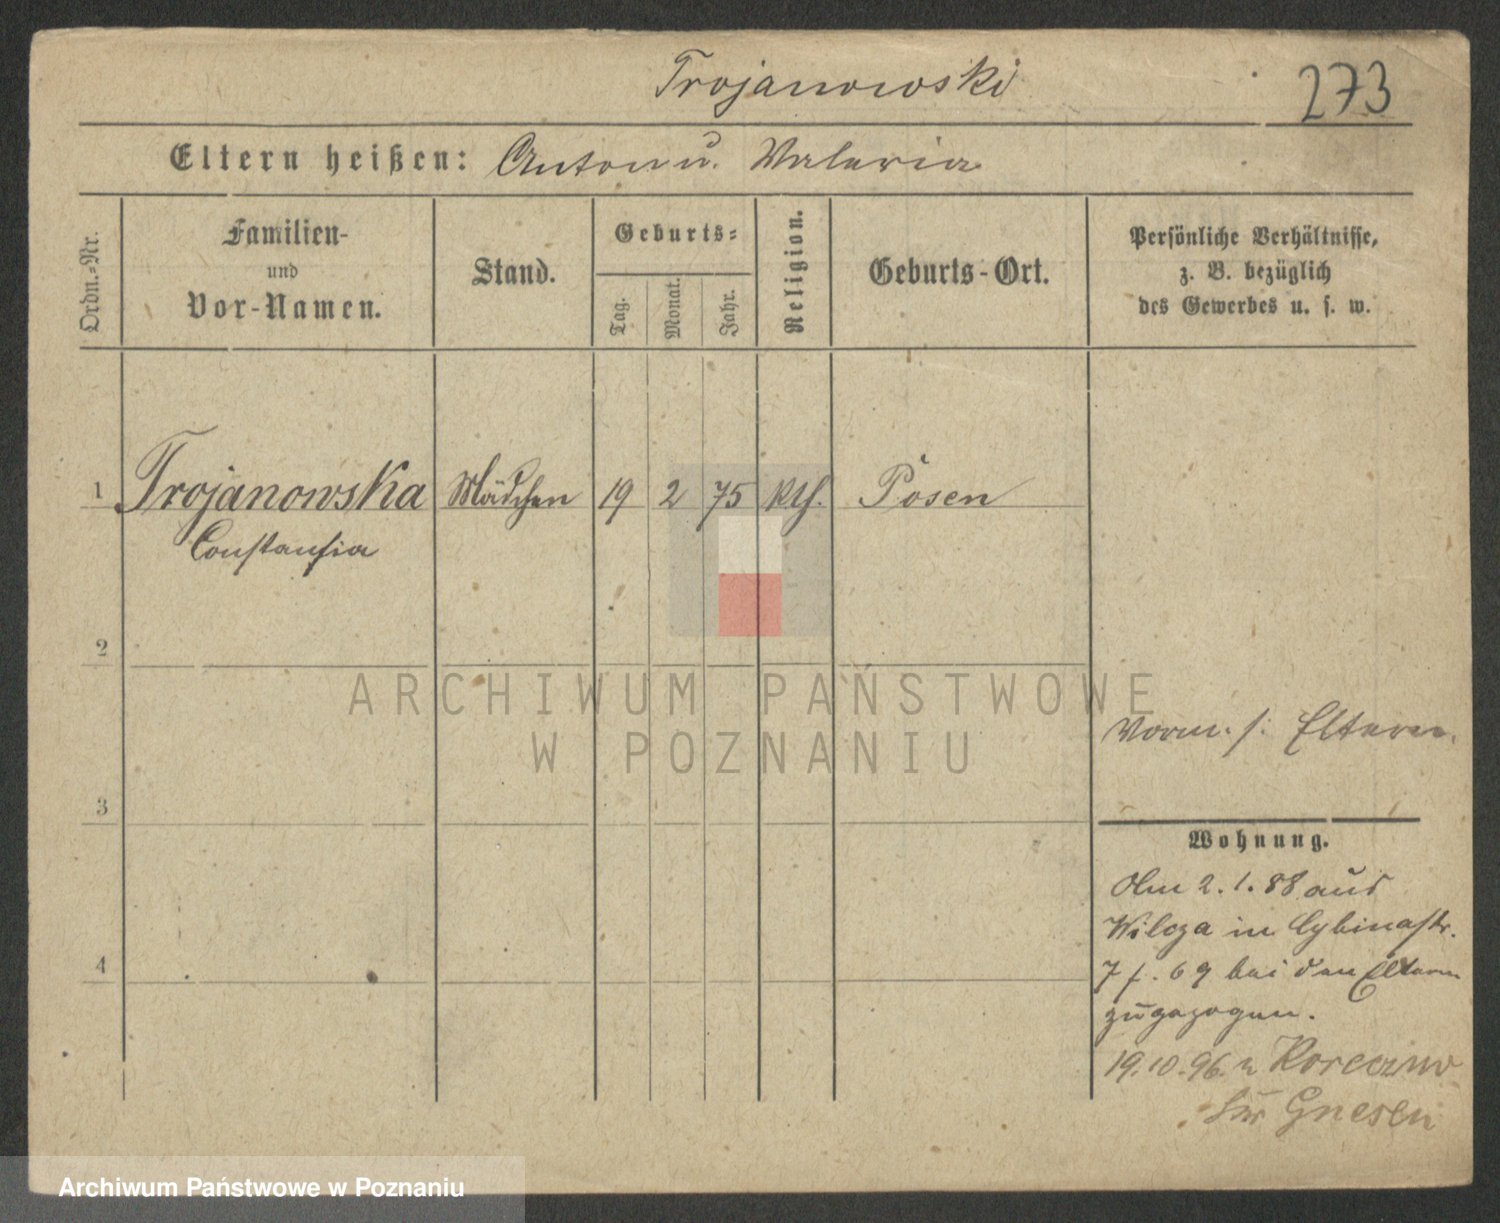 Trojanowski
273
Eltern heißen: Anton u. Valeria
Ordn.-Nr.
Familien-
und
Vor-Namen.
Stand.
Geburts-
Tag.
Monat.
Jahr.
Religion.
Geburts-Ort.
Persönliche Verhältnisse,
z. B. bezüglich
des Gewerbes u. s. w.
1 Trojanowska Mädchen 19 2 75 kth. Posen
Constansia
2
3
4
Vorm. s. Eltern.
Wohnung.
Am 2. 1. 88 aus
Wilcza in Cybinastr.
7 f. 69 bei den Eltern
zugezogen.
19.10.96. n
Gnesen
ARCHIWUM PAŃSTWOWE
W POZNANIU
Archiwum Państwowe w Poznaniu